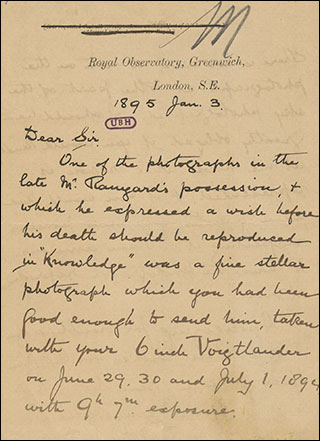 Royal Observatory, Greenwich,
London, S.E.
1895 Jan. 3
UBH
Dear Sir.
One of the photographs in the
late Mr Ranyard's possession, &
which he expressed a wish before
his death should be reproduced
in "Knowledge" was a fine stellar
photograph which you had been
good enough to send him, taken
with your 6 inch Voigtlander
on June 29, 30 and July 1, 1894
with 9h 7m exposure.